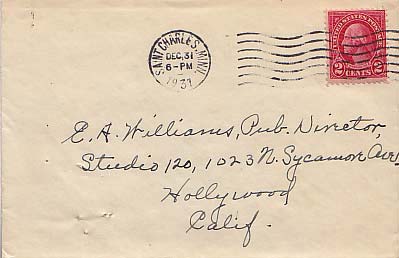 SAINT CHARLES, MINN.
DEC, 31
6-PM
1931
UNITED STATES POSTAGE
2 CENTS 2
E. A. Williams, Pub. Director,
Studio 120, 1023 N. Sycamore Ave,
Hollywood
Calif.